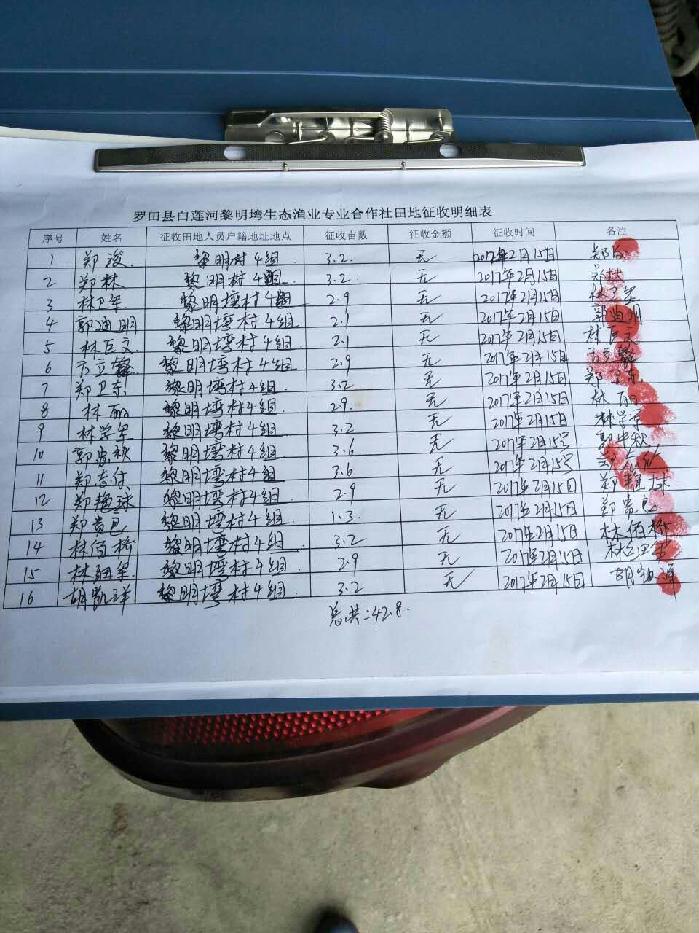 罗田县白莲河黎明塆生态渔业专业合作社田地征收明细表
序号 姓名 征收田地人员户籍地址地点 征收亩数 征收金额 征收时间 备注
1 郑浚 黎明村4组 3.2 无 2017年2月15日 郑
2 郑林 黎明村4组 3.2 无 2017年2月15日 郑林
3 林卫军 黎明塆村4组 2.9 无 2017年2月15日 林卫军
4 郭 明 黎明塆村4组 2.1 无 2017年2月15日
5 林巨文 黎明塆村4组 2.1 无 2017年2月15日 林巨文
6 黎明塆村4组 2.9 无 2017年2月15日
7 郑卫东 黎明塆村4组 3.2 无 2017年2月15日 郑 东
8 林丽 黎明塆村4组 2.9 无 2017年2月15日 林
9 林学军 黎明塆村4组 3.2 无 2017年2月15日 林学军
10 郭 秋 黎明塆村4组 3.6 无 2017年2月15号 郭 秋
11 郑 黎明塆村4组 3.6 无 2017年2月15号
12 郑 球 黎明塆村4组 2.9 无 2017年2月15日 郑 球
13 郑 黎明塆村4组 1.3 无 2017年2月15日 郑
14 林佰桥 黎明塆村4组 3.2 无 2017年2月15日 林佰桥
15 林 军 黎明塆村4组 2.9 无 2017年2月15日 林
16 胡凯祥 黎明塆村4组 3.2 无 2017年2月15日 胡
总共:42.8